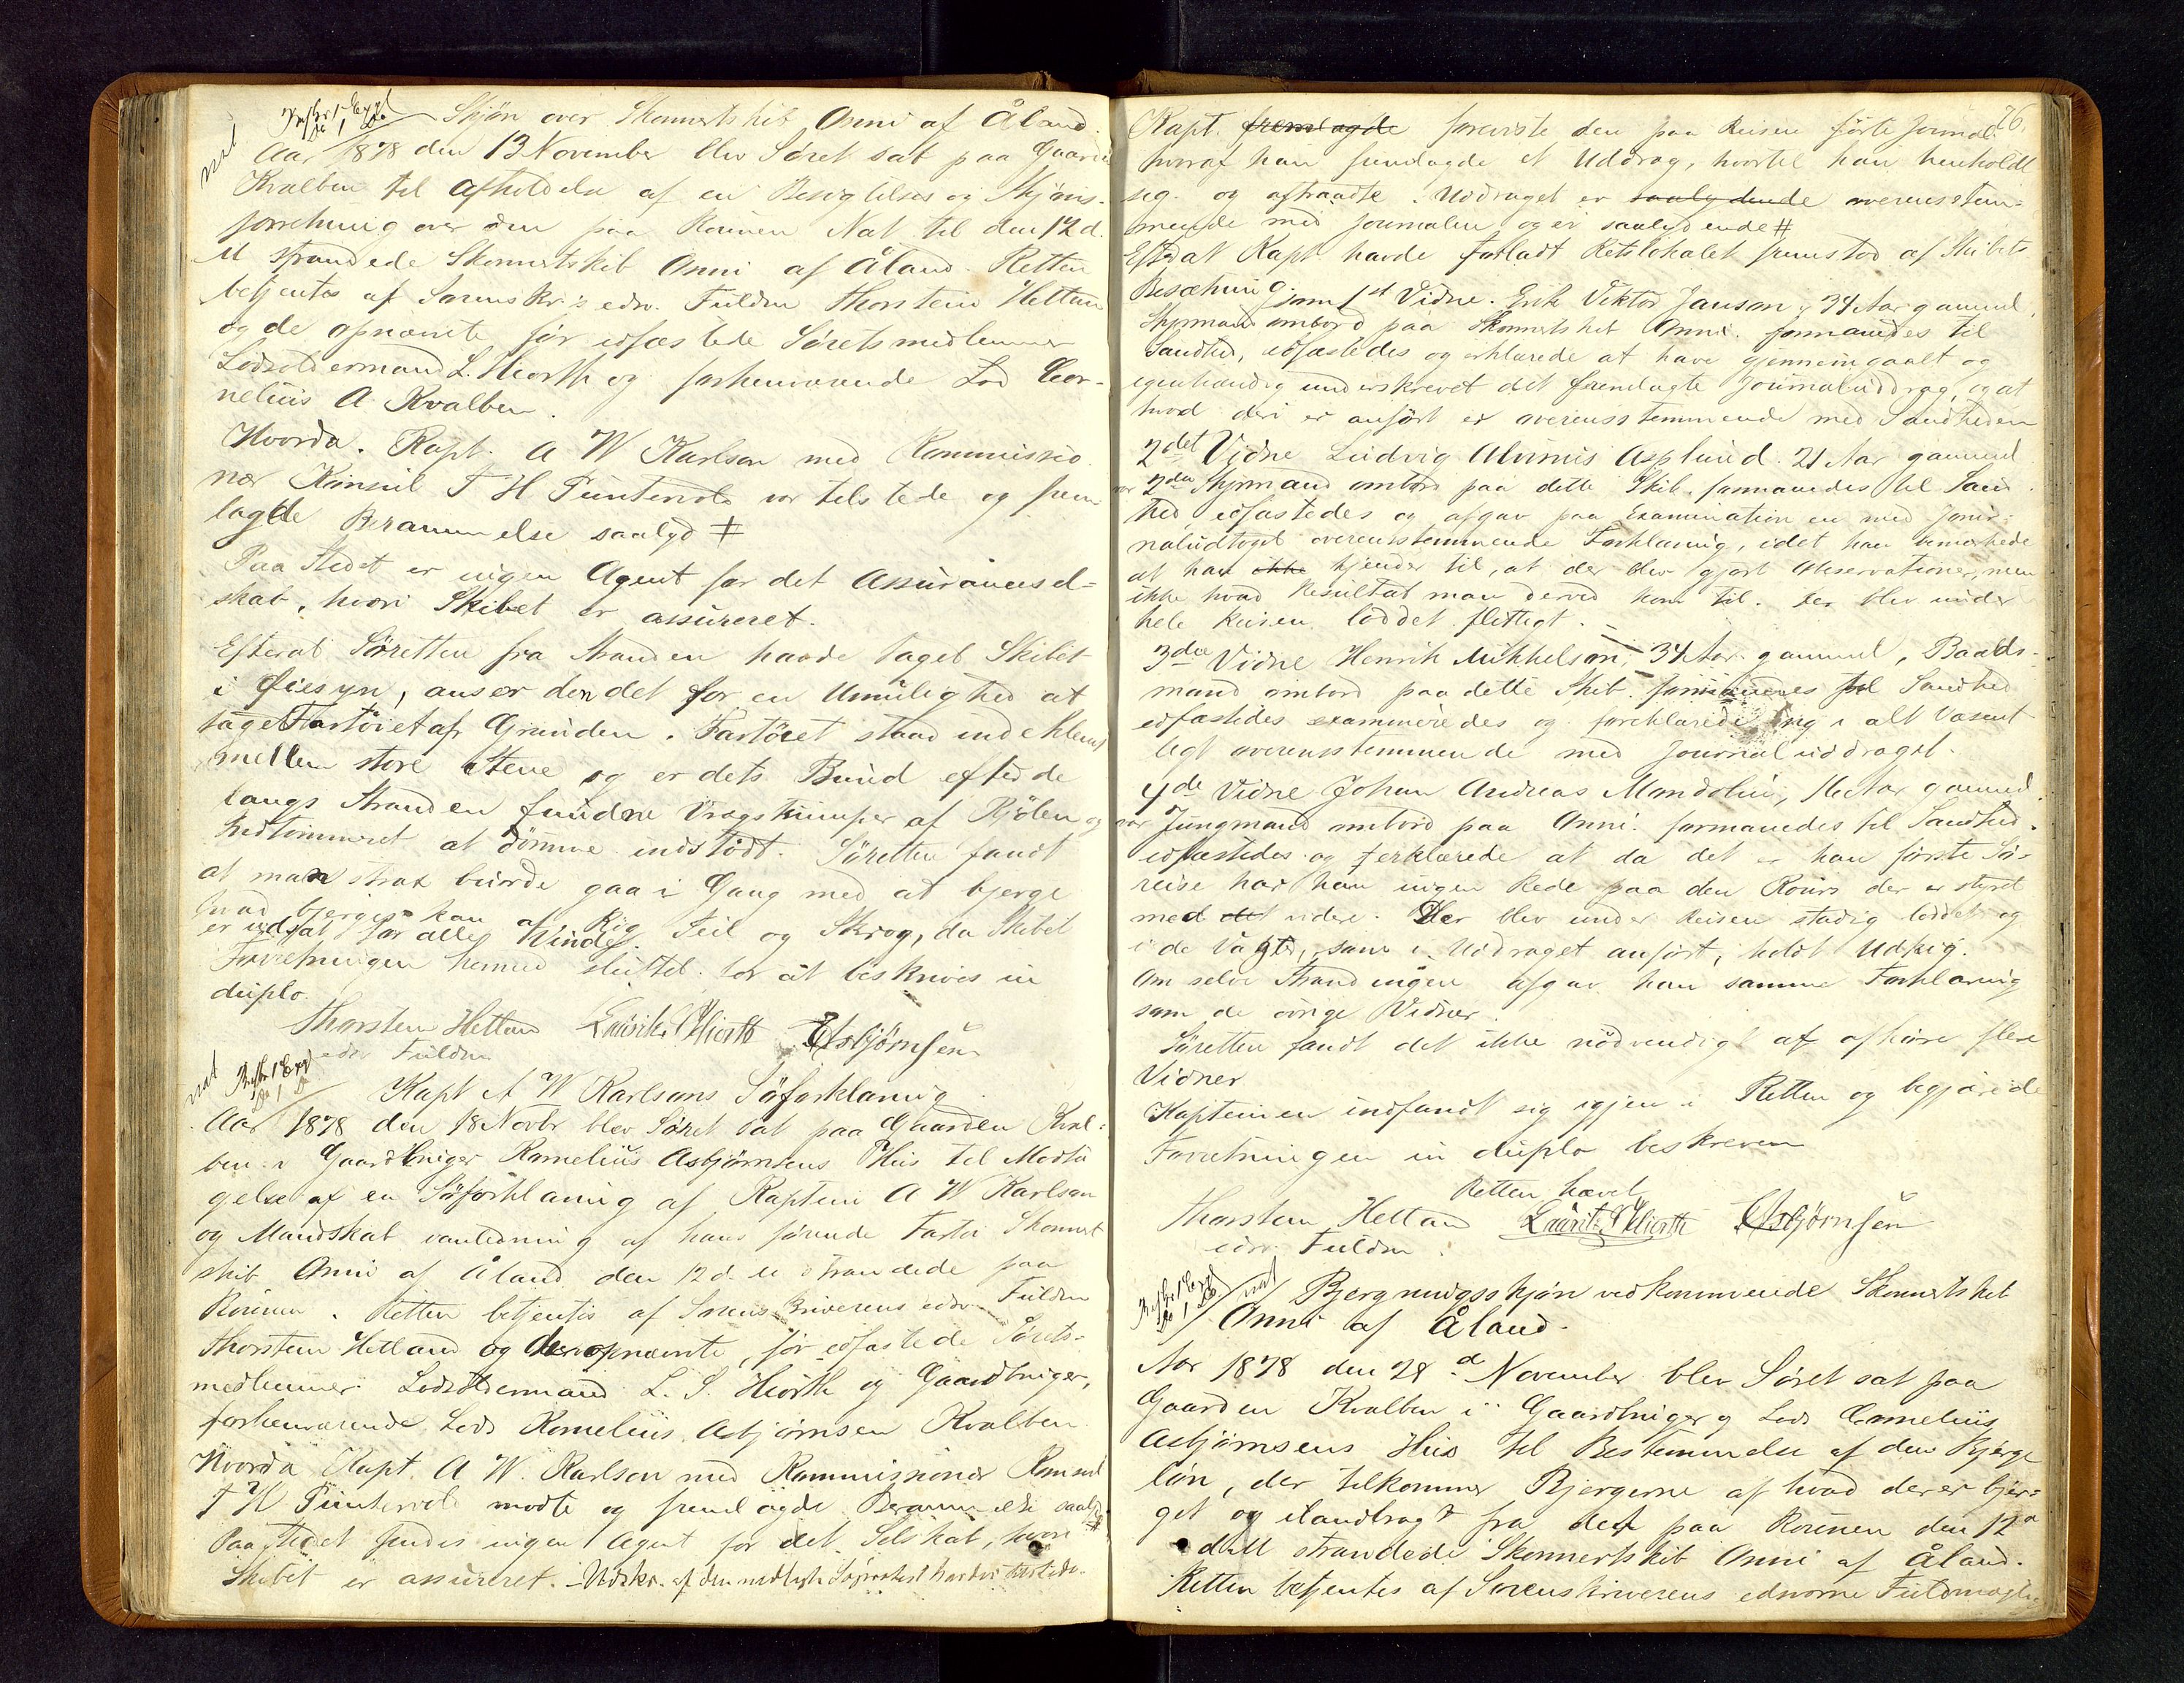 Skjøn over Skonnertskib Onni af Åland.
Aar 1878 den 13 November blev Søret sat paa Gaarden
Kvalben til Afholdelse af en Besigtelses og Skjøns-
forretning over den paa Rounen Nat til den 12 d.
M strandede Skonnertskib Onni af Åland. Retten
betjentes af Sorenskr's edsv. Fuldm Thorstein Hetland
og de opnævnte før edfæstede Søretsmedlemmer
Lodsoldermand L. Hiorth og forhenværende Lod Cor-
nelius A. Kvalben.
Hvorda. Kapt. A W Karlson med Kommissio
nær Konsul T H Puntervold var tilstede og frem
lagde Berammelse saalyd #
Paa Stedet er ingen Agent for det Assurancesel-
skab, hvori Skibet er assureret.
Efterat Søretten fra Stranden havde taget Skibet
i Øiesyn, anser den det for en Umulighed at
tage Fartøiet af Grunden. Fartøiet staar indeklemt
mellem store Stene og er dets Bund efter de
langs Stranden fundne Vragstumper af Kjølen og
Bundtømmeret at dømme indstødt. Søretten fandt
at man strax burde gaa i Gang med at bjerge
hvad bjerges kan af Rig Seil og Skrog, da Skibet
er udsat for alle Vinde.
Forretningen hermed sluttet for at beskrives in
duplo.
Thorstein Hetland Lauritz Hiorth CAsbjørnsen
edsv Fuldm
Kapt A W Karlsons Søforklaring.
Aar 1878 den 18 Novbr blev Søret sat paa Gaarden Kval-
ben i Gaardbruger Kornelius Asbjørnsens Hus til Modta
gelse af en Søforklaring af Kaptein A W Karlson
og Mandskab i anledning af hans førende Fartøi Skonnert
skib Onni af Åland den 12 d. M strandede paa
Rounen. Retten betjentes af Sorenskriverens edsv Fuldm
Thorstein Hetland og de opnævnte, før edfæstede Sørets-
medlemmer Lodsoldermand L. S. Hiorth og Gaardbruger,
forhenværende Lods Kornelius Asbjørnsen Kvalben
Hvorda Kapt. A W. Karlson med Kommissionær Konsul
T H Puntervold mødte og fremlagde Berammelse saalyd #
Paa Stedet findes ingen Agent for det Selskab, hvori
Skibet er assureret. - Udskr. af den nedlagte Søprotest havdes tilstede.
76.
Kapt. fremlagde foreviste den paa Reisen førte Journal
hvoraf han fremlagde et Uddrag, hvortil han henholdt
sig. og aftraadte. Uddraget er saalydende overensstem-
mende med Journalen og er saalydende #
Efterat Kapt havde forladt Retslokalet fremstod af Skibets
Besætning:
som 1st Vidne. Erik Viktor Janson, 34 Aar gammel,
Styrmand ombord paa Skonnertskib Onni. formanedes til
Sandhed, edfæstedes og erklærede at have gjennemgaaet og
egenhændig underskrevet det fremlagte Journaluddrag, og at
hvad deri er anført er overensstemmende med Sandheden
2det Vidne Ludvig Alvinus Asplund. 21 Aar gammel
var 2den Styrmand ombord paa dette Skib. formanedes til Sand
hed, edfæstedes og afgav paa Examination en med Jour-
naludtoget overensstemmende Forklaring, idet han bemærkede
at han ikke kjender til, at der blev gjort Observationer, men
ikke hvad Resultat man derved kom til. Der blev under
hele Reisen loddet flittigt.
3die Vidne Henrik Mikkelson, 34 Aar gammel, Baads-
mand ombord paa dette Skib. formanedes til Sandhed
edfæstedes examineredes og forklarede sig i alt Væsent
ligt overensstemmende med Journaluddraget.
4de Vidne Johan Andreas Mandolin, 16 Aar gammel
var Jungmand ombord paa Onni. formanedes til Sandhed.
edfæstedes og forklarede at da det er han første Sø-
reise har han ingen Rede paa den Kours der er styret
med det videre. Der blev under Reisen stadig loddet og
i de Vagter, som i Uddraget anført, holdt Udkig.
Om selve Strandingen afgav han samme Forklaring
som de øvrige Vidner.
Søretten fandt det ikke nødvendigt at afhøre flere
Vidner
Kapteinen indfandt sig igjen i Retten og begjærede
Forretningen in duplo beskreven
Retten hævet
Thorstein Hetland Lauritz S Hiorth CAsbjørnsen
edsv. Fuldm.
Bjergningsskjøn vedkommende Skonnertskib
Onni af Åland.
Aar 1878 den 28de November blev Søret sat paa
Gaarden Kvalben i Gaardbruger og Lods Cornelius
Asbjørnsens Hus til Bestemmelse af den Bjerge
løn, der tilkommer Bjergerne af hvad der er bjer-
get og ilandbragt fra det paa Rounen den 12te
d M strandede Skonnertskib Onni af Åland.
Retten betjentes af Sorenskriverens edsvorne Fuldmægtig